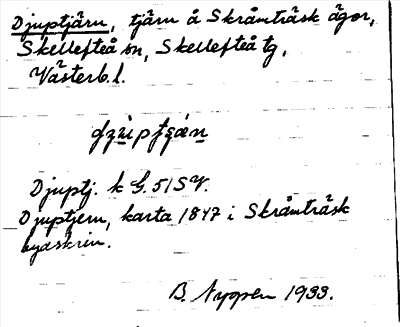 Djuptjärn, tjärn å Skråmträsk ägor,
Skellefteå sn, Skellefteå tg,
Västerb. l.
Djuptj. k G. 51 SV.
Djuptjern, karta 1847 i Skråmträsk
byaskrin.
B. Nyopen 1933.